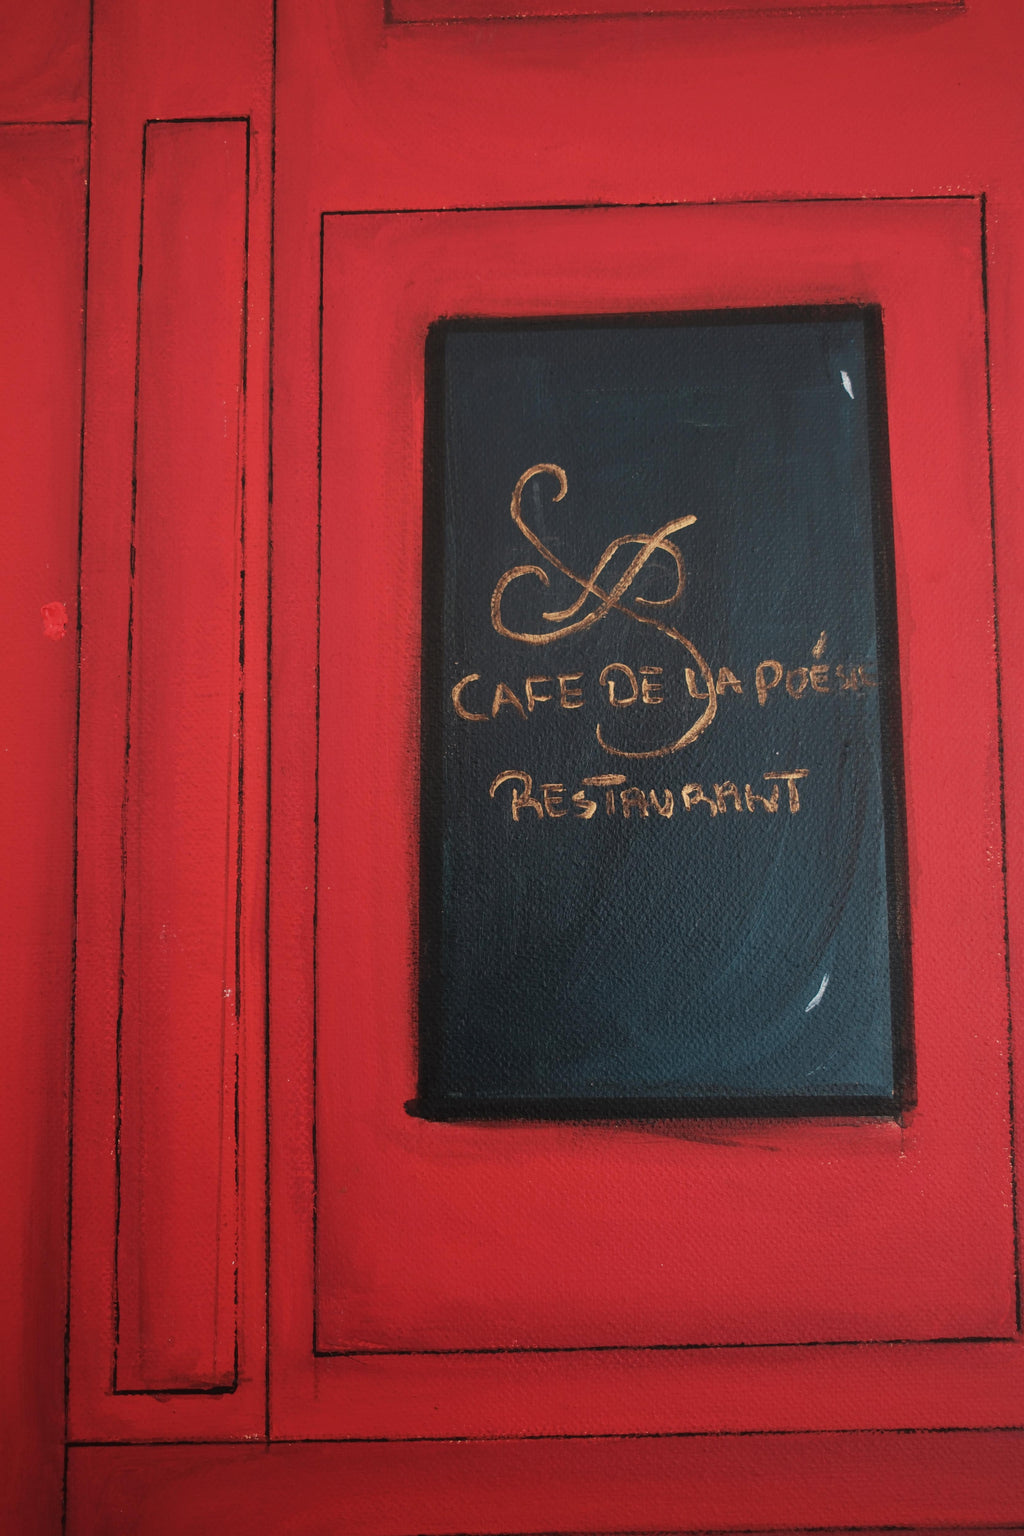 CAFE DE LA POÉSIE
RESTAURANT